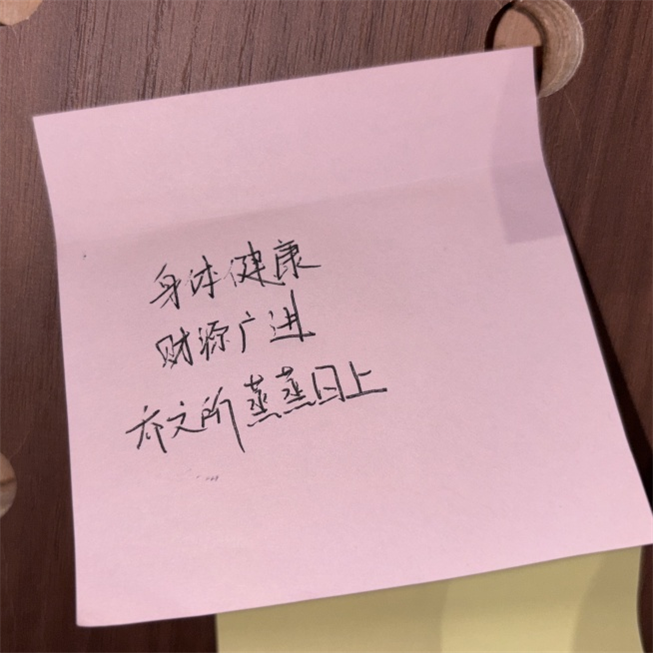 身体健康
财源广进
乔文所蒸蒸日上